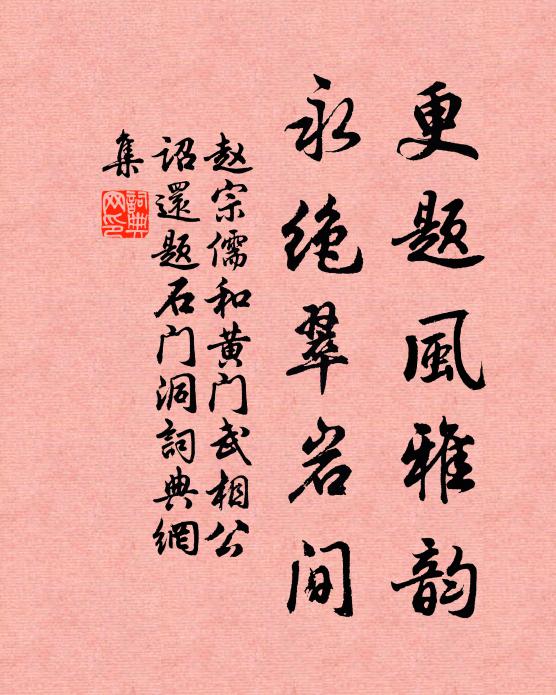 更题風雅韵
永绝翠岩间
赵宗儒和黄门武相公
诏還题石门洞詞典網
集
詞典
网印